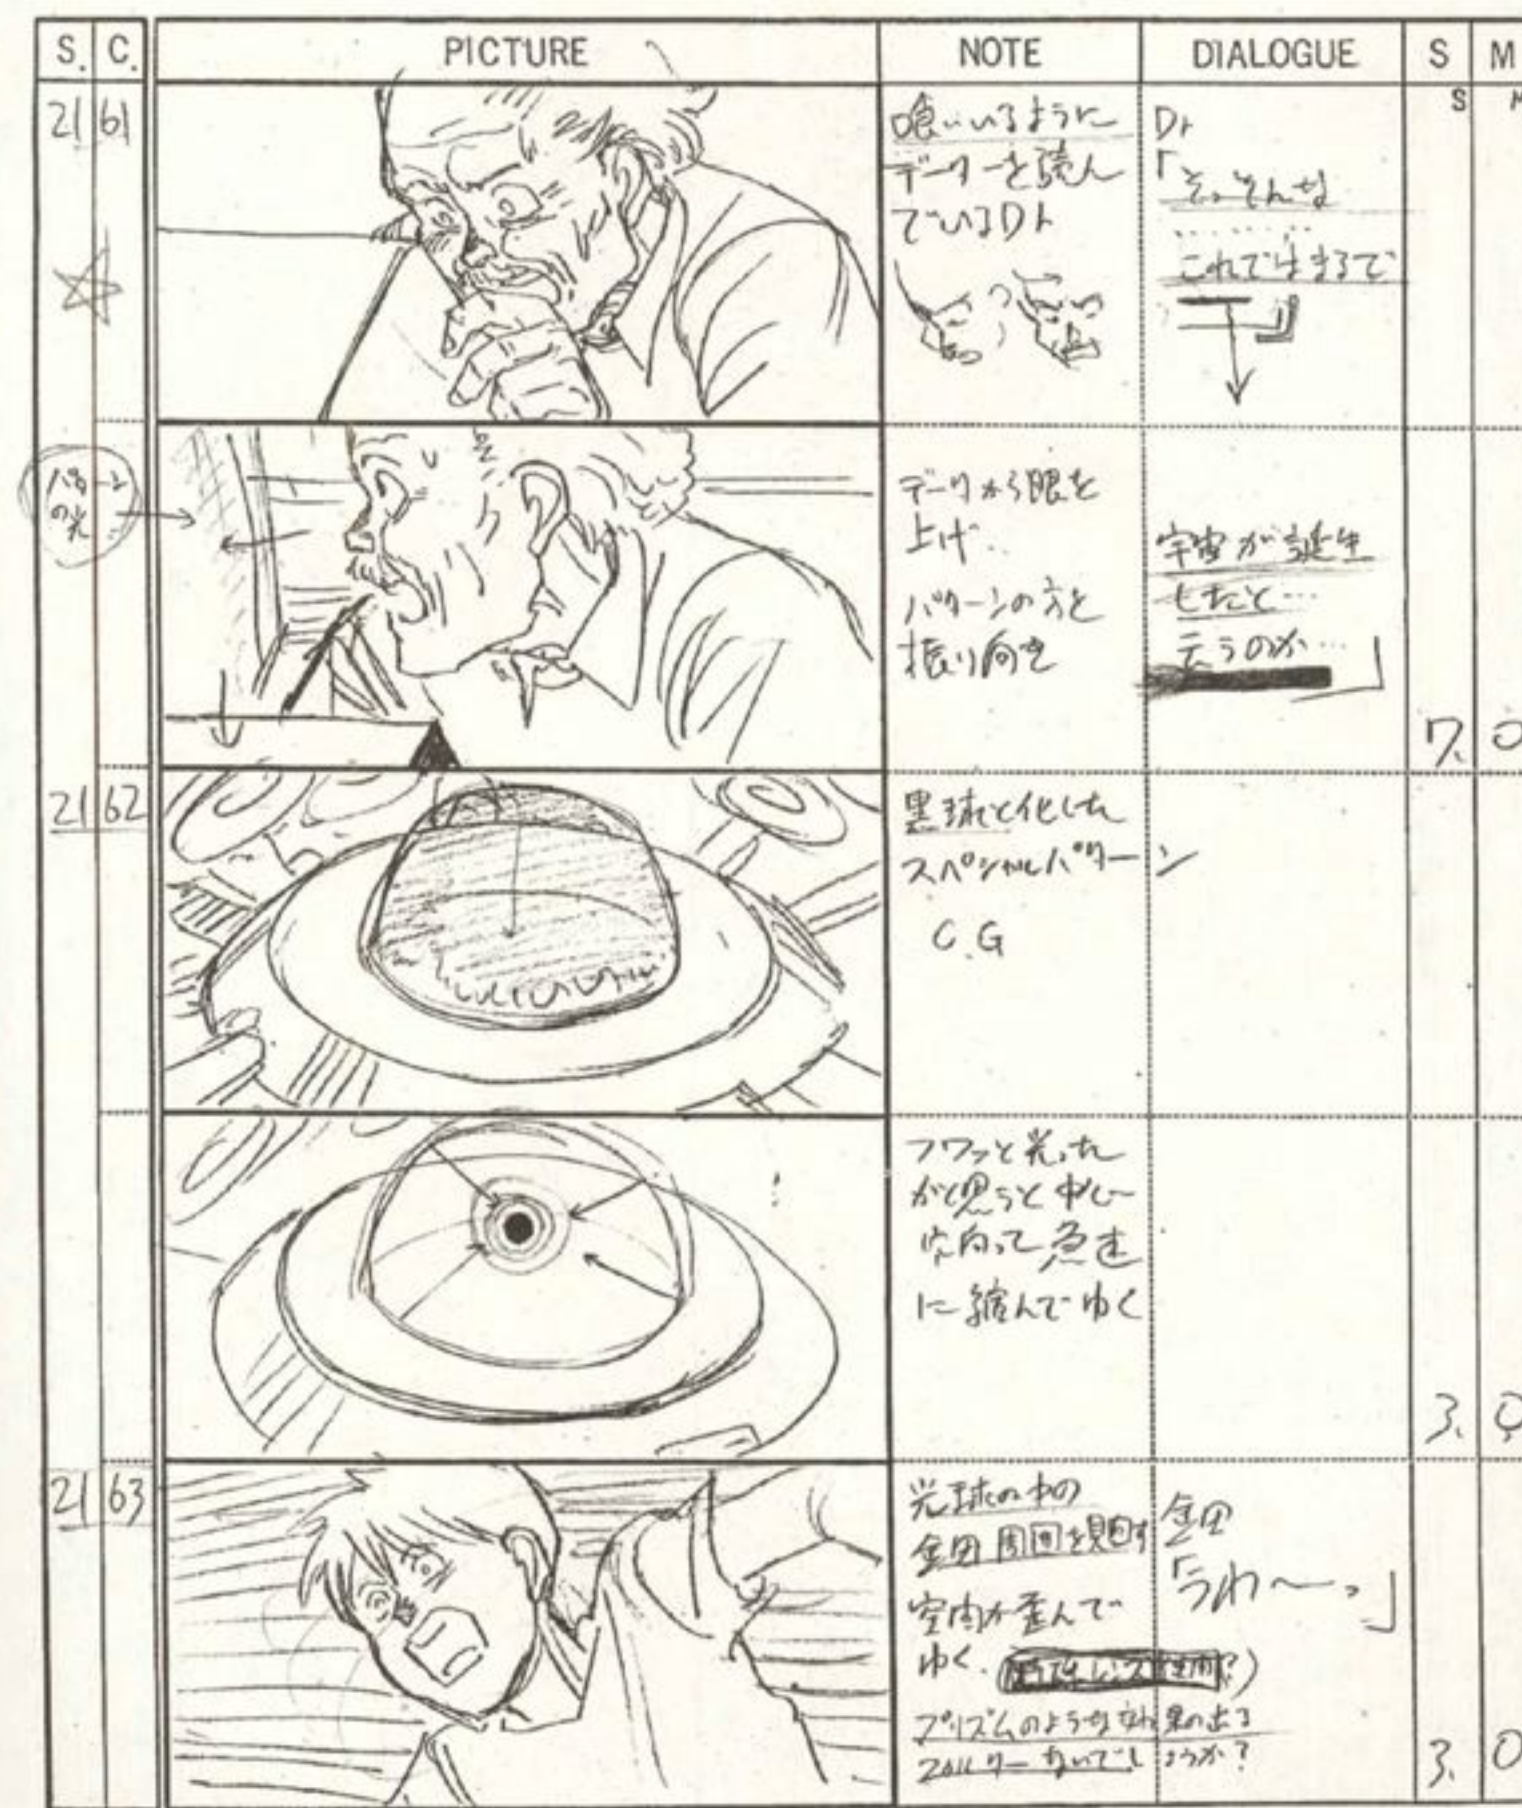 S. C. PICTURE NOTE DIALOGUE S M
S
21 61
喰いいるように
データーを読ん
でいるDr
Dr
「そ、そんな
………
これではまるで
」
パターン
の光
データから眼を
上げ…
パターンの方を
振り向き
宇宙が誕生
したと…
云うのか…」
7. 0
21 62
黒球と化した
スペシャルパターン
C.G
フワッと光った
かと思うと中心
に向って急速
に縮んでゆく
3. 0
21 63
光球の中の
金田 周囲を見回す
空間が歪んで
ゆく.
プリズムのような効果の出る
フィルターないでしょうか?
金田
「うわ〜っ」
3. 0